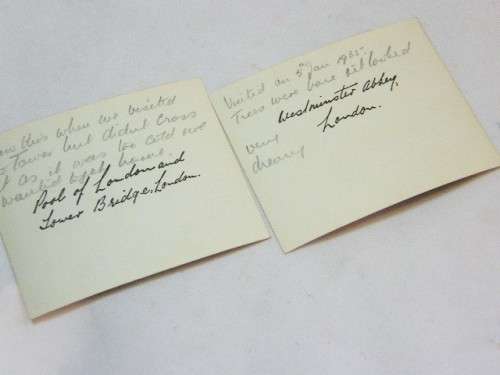 this when we visited
Tower but didn't cross
as, it was too cold we
wanted to get home.
Pool of London and
Tower Bridge. London.
Visited on 5th Jan 1935.
Trees were bare & it looked
Westminster Abbey,
very London.
dreary